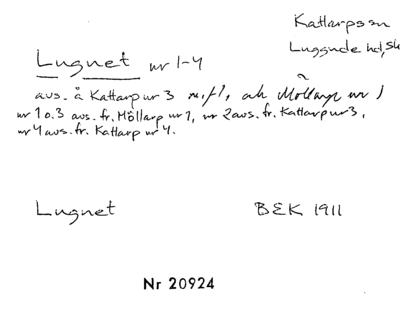 Kattarps sn
Luggude hd, Sk
Lugnet nr 1-4
avs. å Kattarp nr 3 m.fl., och Möllarp nr 1
nr 1 o. 3 avs. fr. Möllarp nr 1, nr 2 avs. fr. Kattarp nr 3,
nr 4 avs. fr. Kattarp nr 4.
Lugnet BEK 1911
Nr 20924